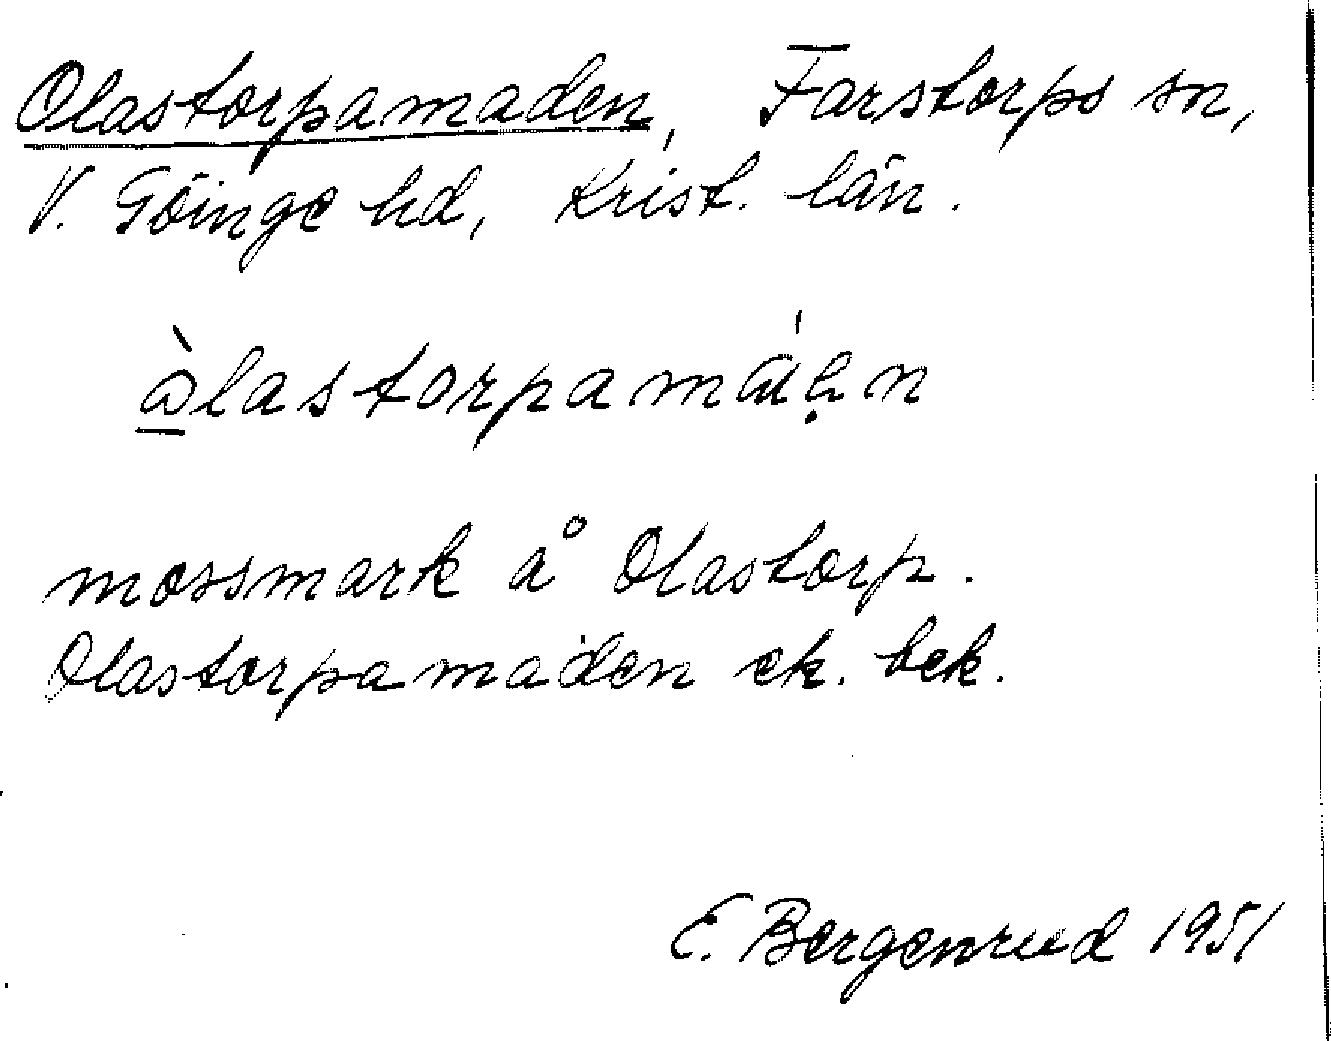 Olastorpamaden, Farstorps sn,
V. Göinge hd, Krist. län.
mossmark å Olastorp.
Olastorpamaden ek. bek.
E. Bergenrud 1951